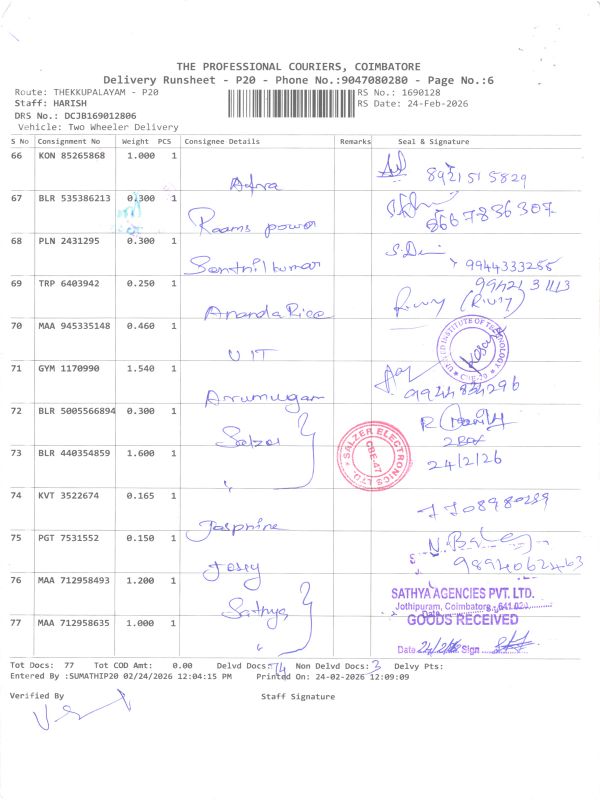 THE PROFESSIONAL COURIERS, COIMBATORE
Delivery Runsheet - P20 - Phone No.:9047080280 - Page No.:6
Route: THEKKUPALAYAM - P20
RS No.: 1690128
Staff: HARISH
RS Date: 24-Feb-2026
DRS No.: DCJB169012806
Vehicle: Two Wheeler Delivery
S No Consignment No Weight PCS Consignee Details Remarks Seal & Signature
66 KON 85265868 1.000 1
8921515829
67 BLR 535386213 0.300 1
Raams power
8667836307
68 PLN 2431295 0.300 1
Senthilkumar
9944333255
69 TRP 6403942 0.250 1
Ananda Rice
70 MAA 945335148 0.460 1
UIT
UNITED INSTITUTE OF TECHNOLOGY
CBE-20
71 GYM 1170990 1.540 1
Arrumugam
72 BLR 5005566894 0.300 1
Salzar
SALZER ELECTRONICS LTD.
CBE-47
73 BLR 440354859 1.600 1
24/2/26
74 KVT 3522674 0.165 1
Jasphine
75 PGT 7531552 0.150 1
Josey
76 MAA 712958493 1.200 1
Sathya
SATHYA AGENCIES PVT. LTD.
Jothipuram, Coimbatore - 641 020.
77 MAA 712958635 1.000 1
GOODS RECEIVED
Date Sign
Tot Docs: 77 Tot COD Amt: 0.00 Delvd Docs: 74 Non Delvd Docs: 3 Delvy Pts:
Entered By :SUMATHIP20 02/24/2026 12:04:15 PM Printed On: 24-02-2026 12:09:09
Verified By
Staff Signature